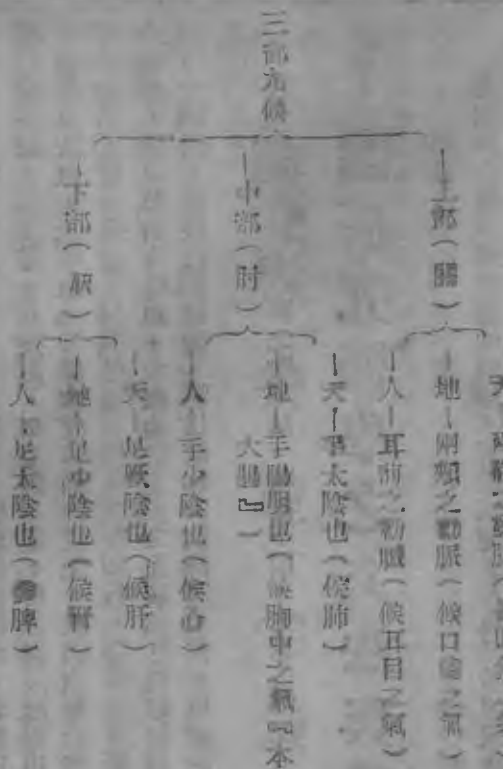 三部九候
上部（）
地―兩頰之動脈（候口齒之氣）
人―耳前之動脈（候耳目之氣）
中部（肘）
天―手太陰也（候肺）
地―手陽明也（候胸中之氣『本
大腸』）
人―手少陰也（候心）
下部（）
天―足厥陰也（候肝）
地―足少陰也（候腎）
人―足太陰也（脾）